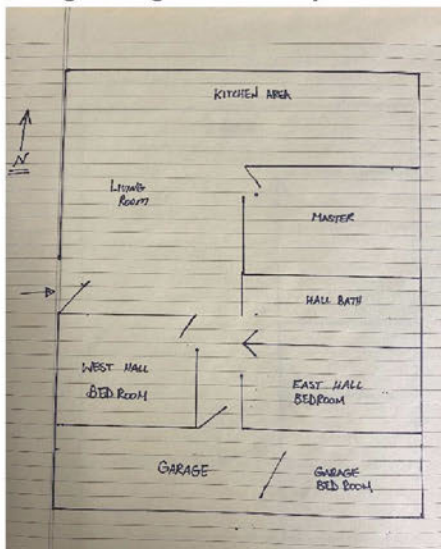 KITCHEN AREA
N
LIVING
ROOM
MASTER
HALL BATH
WEST HALL
BEDROOM
EAST HALL
BEDROOM
GARAGE
GARAGE
BEDROOM